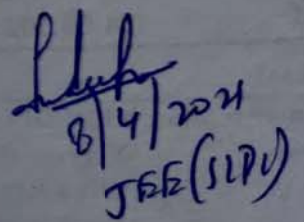 8/4/2021
JEE (SLDC)